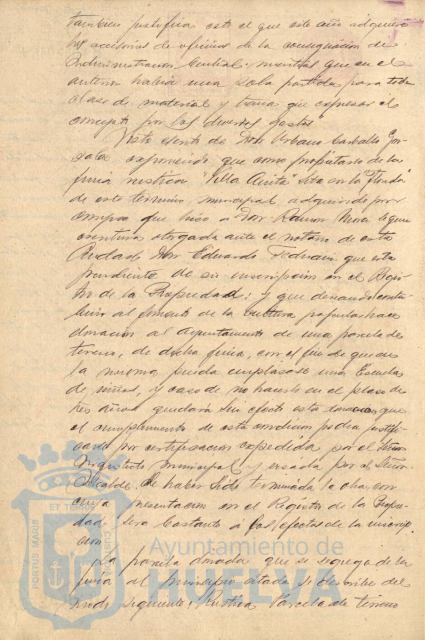 tambien justifica este el que este año adquiera
los accesorios de oficina de la consignación de
Administración Central, mientras que en el
anterior había una sola partida para toda
clase de material y tenía que expresar el
concepto por los diversos gastos
Visto escrito de Don Urbano Carballo
exponiendo que como propietario de la
finca rústica "Villa Anita" sita en la
de este término municipal adquirida por
compra que hizo a Don Ramon Mora según
escritura otorgada ante el notario de esta
Ciudad Don Eduardo que esta
pendiente de su inscripción en el Regis
tro de la Propiedad; y que deseando contri
buir al fomento de la cultura popular hace
donación al Ayuntamiento de una parcela de
terreno, de dicha finca, con el fin de que en
la misma pueda emplazarse una Escuela
de niños, y caso de no hacerlo en el plazo de
tres años quedará sin efecto esta donacion, que
el cumplimiento de esta condición podrá justifi
carse por certificación expedida por el Señor
Arquitecto Municipal y visada por el Señor
Alcalde, de haber sido terminada la obra, con
cuya presentación en el Registro de la Propie
dad sera bastante a los efectos de la inscrip
cion
La parcela donada que se segrega de la
finca al Municipio citada se describe del
modo siguiente: Rustica Parcela de terreno
PORTUS MARIS ET TERRAE CUSTODIA
Ayuntamiento de
HUELVA